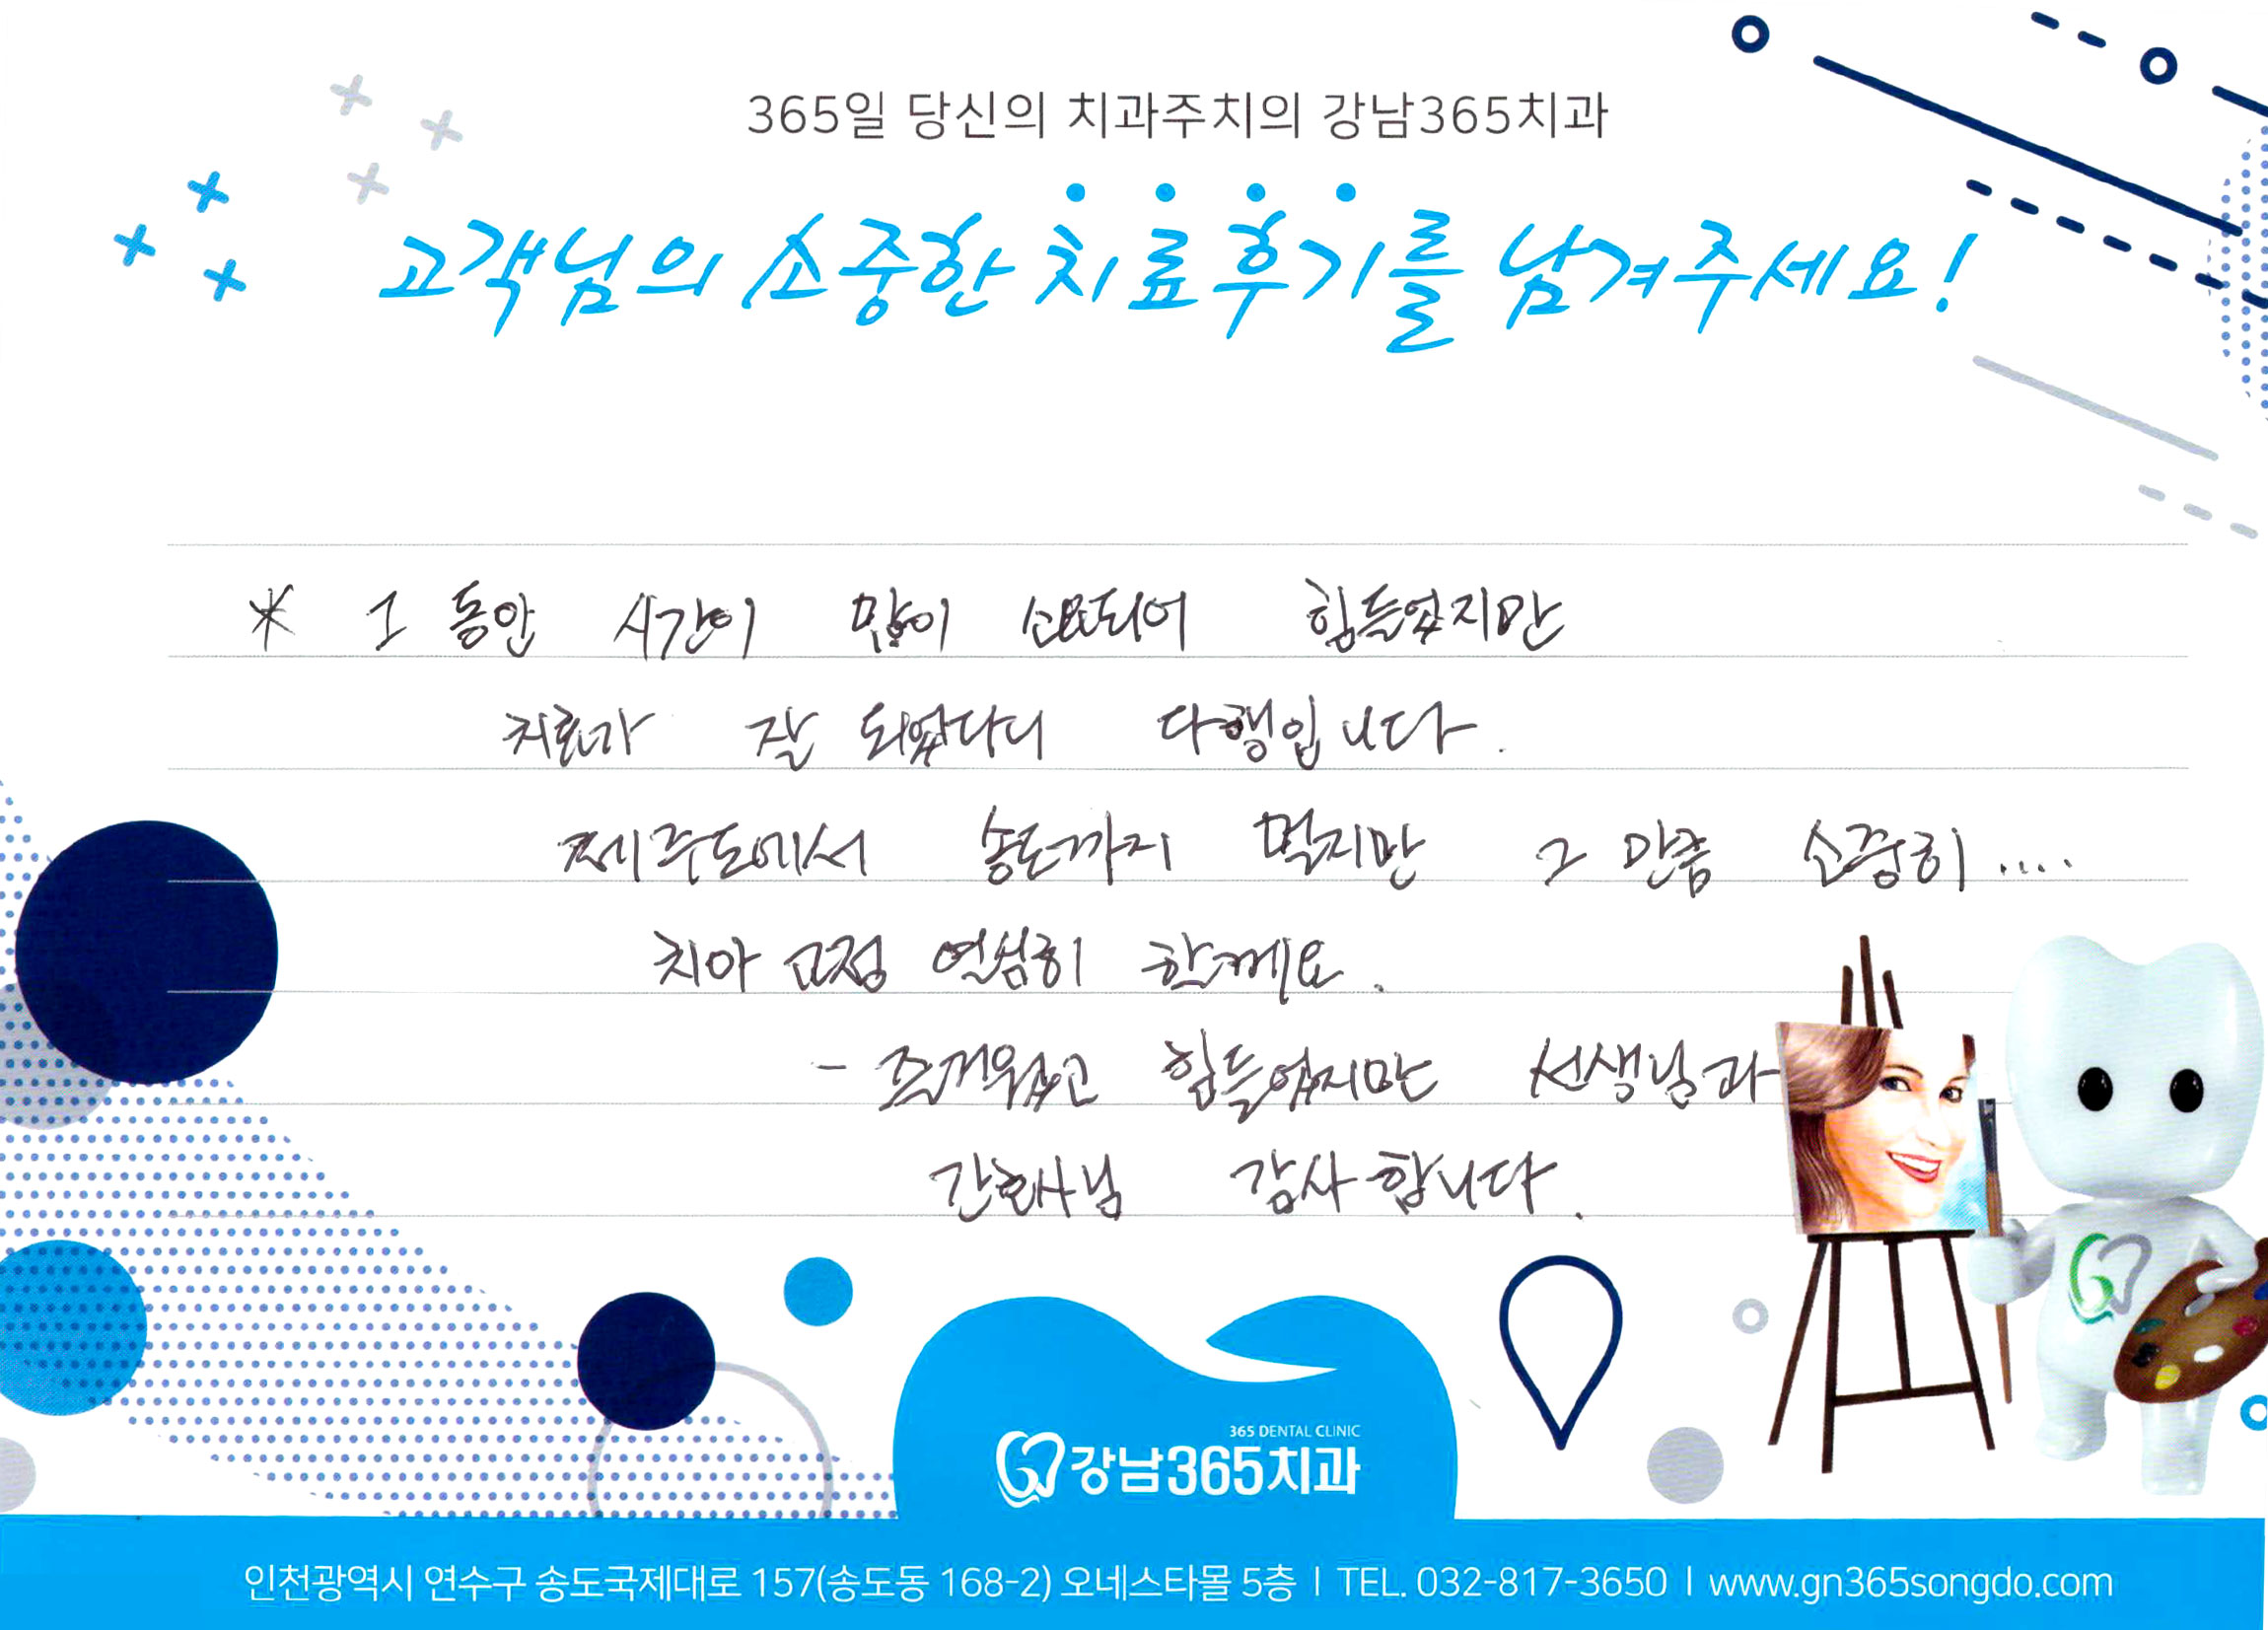 365일 당신의 치과주치의 강남365치과
고객님의 소중한 치료후기를 남겨주세요!
* 그 동안 시간이 많이 소요되어 힘들었지만
치료가 잘 되었다니 다행입니다.
제주도에서 송도까지 멀지만 그 만큼 소중히 ....
치아 교정 열심히 할께요.
- 즐거웠고 힘들었지만 선생님과
간호사님 감사합니다.
365 DENTAL CLINIC
강남365치과
인천광역시 연수구 송도국제대로 157(송도동 168-2) 오네스타몰 5층 | TEL. 032-817-3650 | www.gn365songdo.com